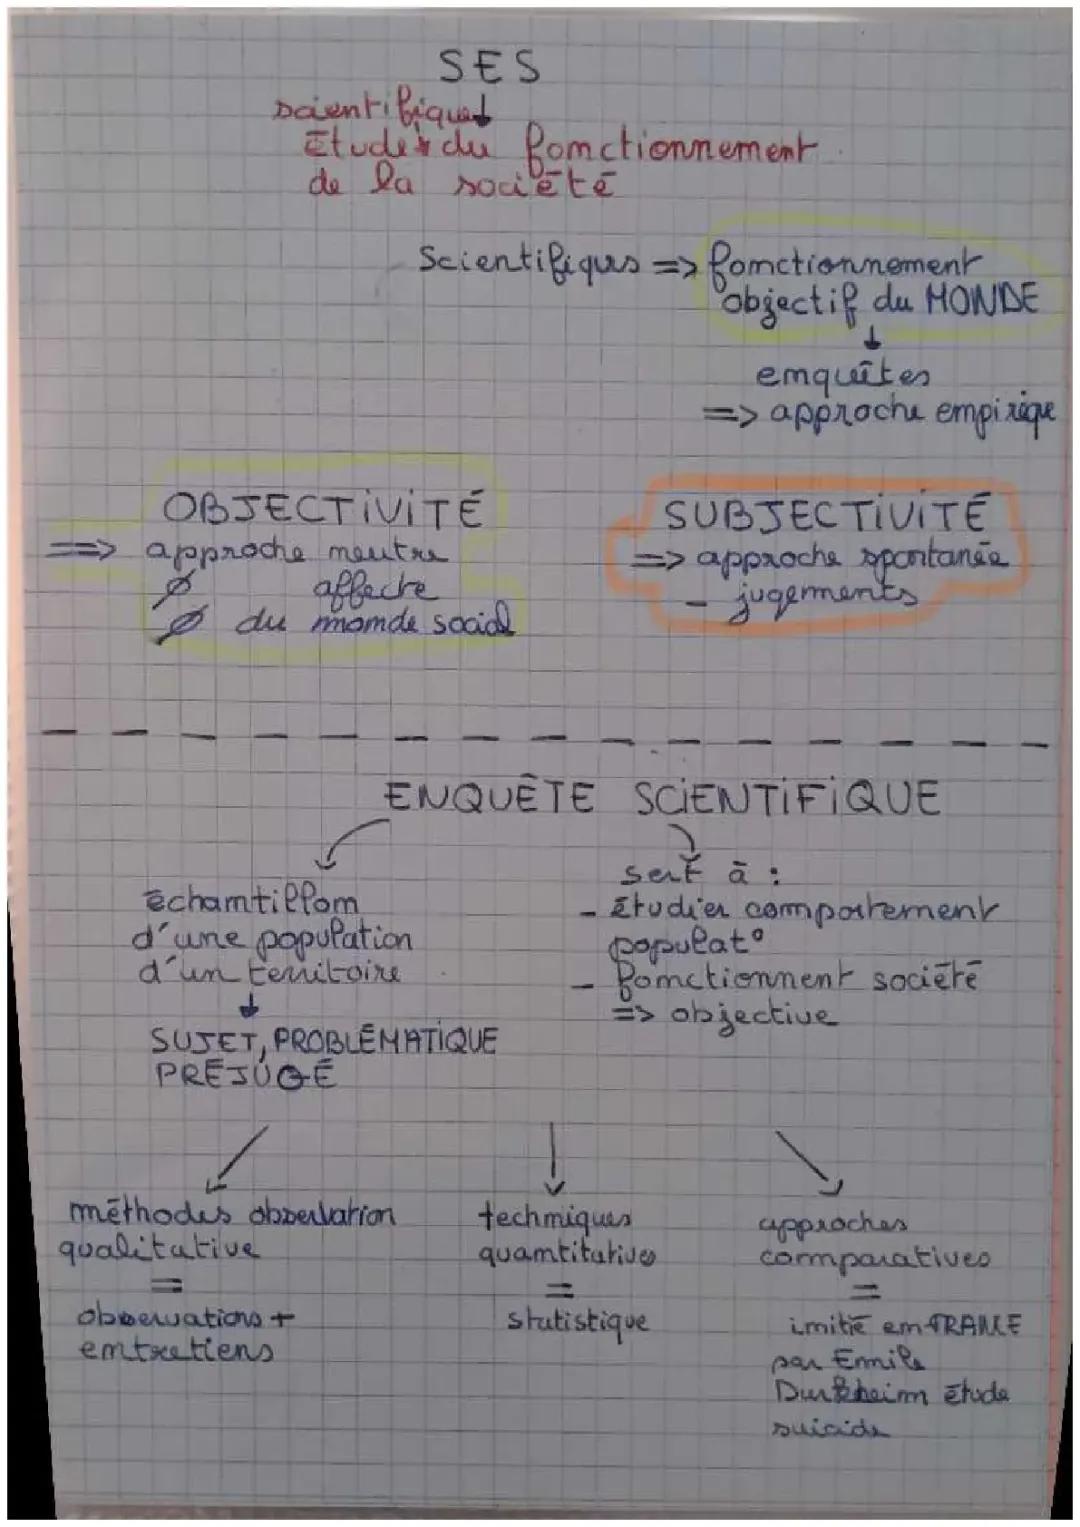 SES
scientifique
Étude du fonctionnement
de la société
Scientifiques => fonctionnement
objectif du MONDE
enquêtes
=> approche empirique
OBJECTIVITÉ
=> approche neutre
Ø affecte
Ø du monde social
SUBJECTIVITÉ
=> approche spontanée
- jugements
ENQUÊTE SCIENTIFIQUE
échantillon
d'une population
d'un territoire
SUJET, PROBLÉMATIQUE
PRÉJUGÉ
sert à :
- Étudier comportement
populat°
- fonctionnent société
=> objective
méthodes observation
qualitative
=
observations +
entretiens
techniques
quantitatives
=
statistique
approches
comparatives
=
imitié en FRANCE
par Emile
Durkheim étude
suicide